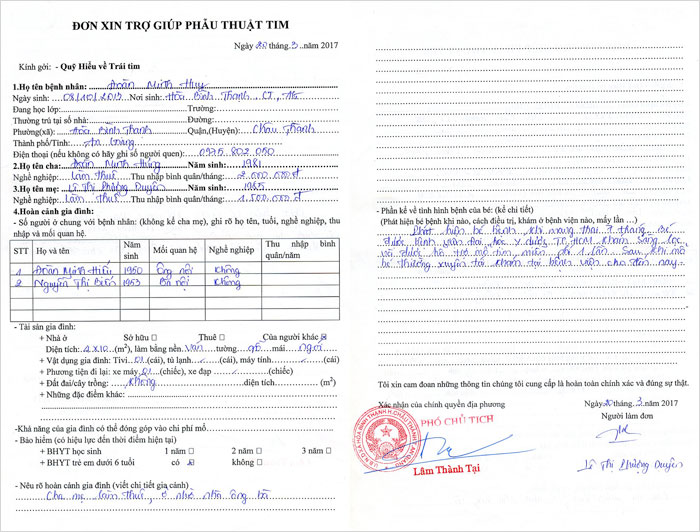 ĐƠN XIN TRỢ GIÚP PHẪU THUẬT TIM
Ngày 20 tháng 3 năm 2017
Kính gởi: - Quỹ Hiểu về Trái tim
1.Họ tên bệnh nhân: Đoàn Minh Huy
Ngày sinh: 08/10/2013 Nơi sinh: Hòa Bình Thạnh, CT, AG
Đang học lớp: Trường:
Thường trú tại số nhà: Đường:
Phường(xã): Hòa Bình Thạnh Quận,(Huyện): Châu Thành
Thành phố/Tỉnh: An Giang
Điện thoại (nếu không có hãy ghi số người quen): 0975 802 050
2.Họ tên cha: Đoàn Minh Năm sinh: 1981
Nghề nghiệp: Làm thuê Thu nhập bình quân/tháng: 2.000.000đ
3.Họ tên mẹ: Lê Thị Phượng Duyên Năm sinh: 1985
Nghề nghiệp: Làm Thuê Thu nhập bình quân/tháng: 1.500.000đ
4.Hoàn cảnh gia đình:
- Số người ở chung với bệnh nhân: (không kể cha mẹ), ghi rõ họ tên, tuổi, nghề nghiệp, thu nhập và mối quan hệ.
STT Họ và tên Năm sinh Mối quan hệ Nghề nghiệp Thu nhập bình quân/năm
1 Đoàn Minh Hiếu 1950 Ông nội Không
2 Nguyễn Thị Biên 1953 Bà nội Không
- Tài sản gia đình:
+ Nhà ở Sở hữu □ Thuê □ Của người khác ☒
Diện tích: 4x10 (m²), làm bằng nền ván tường gỗ mái ngói
+ Vật dụng gia đình: Tivi 01 (cái), tủ lạnh / (cái), máy tính / (cái)
+ Phương tiện đi lại: xe máy 01 (chiếc), xe đạp / (chiếc)
+ Đất đai/cây trồng: không diện tích (m²)
+ Những đặc điểm khác:
-Khả năng của gia đình có thể đóng góp vào chi phí mổ
- Bảo hiểm (có hiệu lực đến thời điểm hiện tại)
+ BHYT học sinh 1 năm □ 2 năm □ 3 năm □
+ BHYT trẻ em dưới 6 tuổi có ☒ không □
- Nêu rõ hoàn cảnh gia đình (viết chi tiết gia cảnh)
Cha mẹ làm thuê, ở nhờ nhà ông bà
- Phần kể về tình hình bệnh của bé: (kể chi tiết)
(Phát hiện bệnh khi nào, cách điều trị, khám ở bệnh viện nào, mấy lần ...)
Phát hiện bé bệnh khi mang thai 7 tháng. Bé
được bệnh viện Đại học Y dược TP.HCM khám sàng lọc
và được hỗ trợ mổ tim miễn phí 1 lần. Sau khi mổ
bé thường xuyên tái khám tại bệnh viện cho đến nay.
Tôi xin cam đoan những thông tin chúng tôi cung cấp là hoàn toàn chính xác và đúng sự thật.
Xác nhận của chính quyền địa phương
Ngày 20 tháng 3 năm 2017
Người làm đơn
PHÓ CHỦ TỊCH
Lâm Thành Tại
Lê Thị Phượng Duyên